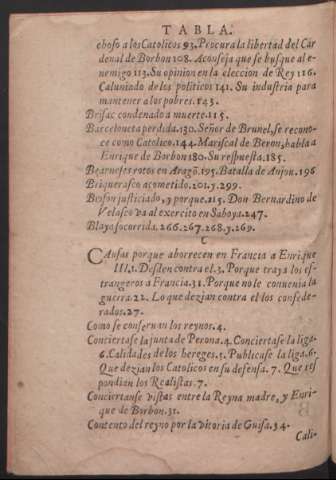 TABLA.
choso a los Catolicos 93. Procura la libertad del Car
denal de Borbon 108. Aconseja que se busque al e-
nemigo 113. Su opinion en la eleccion de Rey 116.
Caluniado de los politicos 141. Su industria para
mantener a los pobres. 143.
Brisac condenado a muerte. 115.
Barceloneta perdida. 130. Señor de Brunel, se recono-
ce como Catolico. 144. Mariscal de Beron, habla a
Enrique de Borbon 180. Su respuesta. 185.
Bearneses rotos en Aragō. 195. Batalla de Anjou. 196
Briquerasco acometido. 201. y. 299.
Birfon justiciado, y porque. 215. Don Bernardino de
Velasco va al exercito en Saboya. 247.
Blaya socorrida. 266. 267. 268. y. 269.
C
CAusas porque aborrecen en Francia a Enrique
III. 1. Desdēn contra el. 3. Porque traya los es-
trangeros a Francia. 31. Porque no le conuenia la
guerra. 22. Lo que dezian contra el los confede-
rados. 27.
Como se conseruan los reynos. 4.
Conciertase la junta de Perona. 4. Conciertase la liga.
6. Calidades de los hereges. 5. Publicase la liga. 6.
Que dezian los Catolicos en su defensa. 7. Que res
pondian los Realistas. 7.
Conciertanse vistas entre la Reyna madre, y Enri-
que de Borbon. 31.
Contento del reyno por la vitoria de Guisa. 34.
Cali-